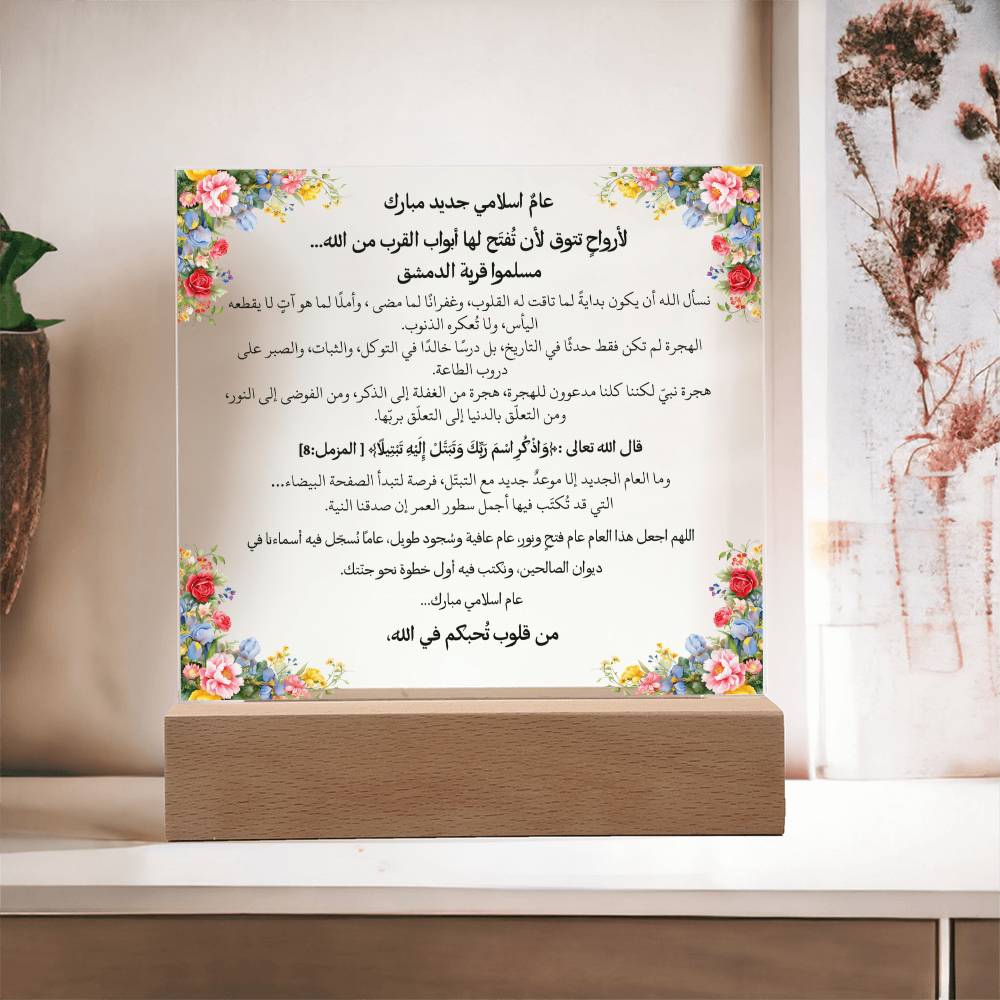 عامٌ اسلامي جديد مبارك
لأرواحٍ تتوق لأن تُفتَح لها أبواب القرب من الله...
مسلموا قرية الدمشق
نسأل الله أن يكون بدايةً لما تاقت له القلوب، وغفرانًا لما مضى ، وأملًا لما هو آتٍ لا يقطعه
اليأس، ولا تُعكره الذنوب.
الهجرة لم تكن فقط حدثًا في التاريخ، بل درسًا خالدًا في التوكل، والثبات، والصبر على
دروب الطاعة.
هجرة نبيّ لكننا كلنا مدعوون للهجرة، هجرة من الغفلة إلى الذكر، ومن الفوضى إلى النور،
ومن التعلّق بالدنيا إلى التعلّق بربّها.
قال الله تعالى :﴿وَاذْكُرِ اسْمَ رَبِّكَ وَتَبَتَّلْ إِلَيْهِ تَبْتِيلًا﴾ [ المزمل:8]
وما العام الجديد إلا موعدٌ جديد مع التبتّل، فرصة لتبدأ الصفحة البيضاء...
التي قد تُكتَب فيها أجمل سطور العمر إن صدقنا النية.
اللهم اجعل هذا العام عام فتحٍ ونور، عام عافية وسُجود طويل، عامًا نُسجّل فيه أسماءنا في
ديوان الصالحين، ونكتب فيه أول خطوة نحو جنّتك.
عام اسلامي مبارك...
من قلوب تُحبكم في الله،